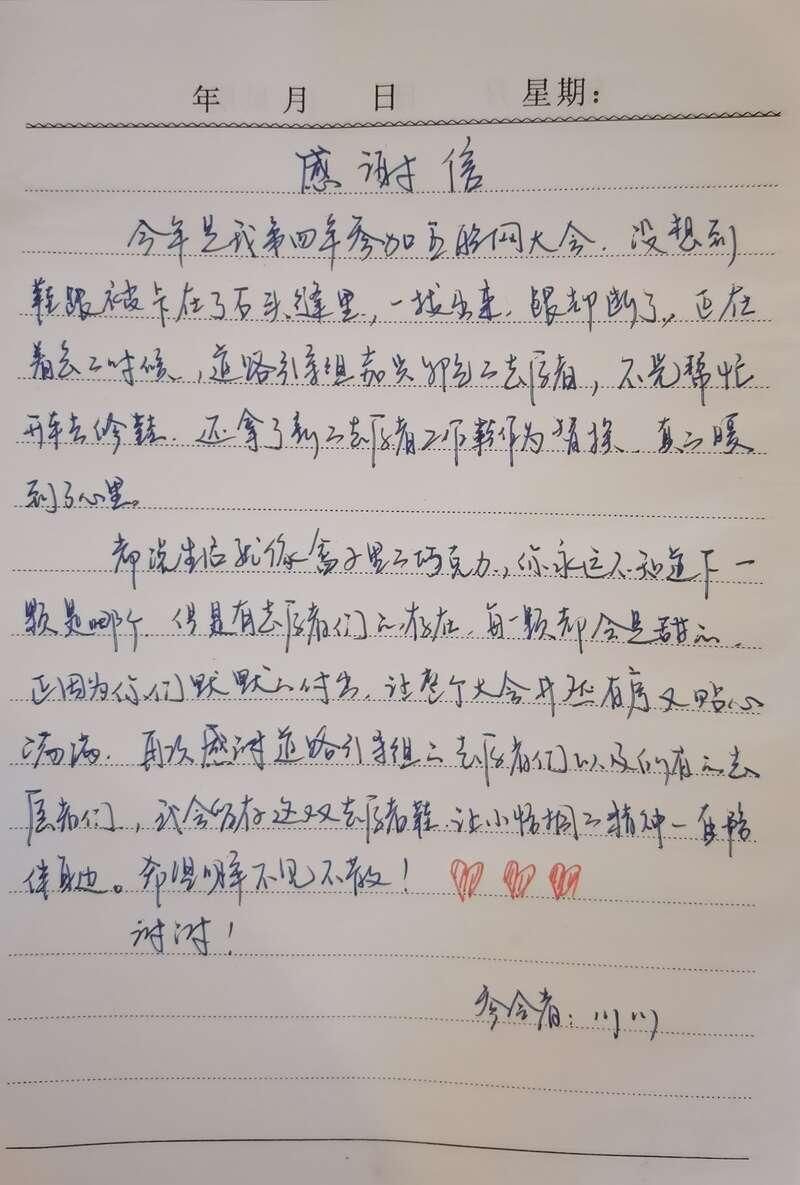 年 月 日 星期:
感谢信
今年是我第四年参加互联网大会，没想到
鞋跟被卡在了石头缝里，一拔出来，跟却断了。正在
着急的时候，道路引导组嘉兴的志愿者，不光帮忙
开车去修鞋，还拿了新的志愿者工作鞋作为替换，真的暖
到了心里。
都说生活就像盒子里的巧克力，你永远不知道下一
颗是哪个，但是有志愿者们的存在，每一颗都会是甜的。
正因为你们默默的付出，让整个大会井然有序又贴心
满满，再次感谢道路引导组的志愿者们以及所有的志
愿者们，我会留存这双志愿者鞋，让小梧桐的精神一直陪
伴身边。希望明年不见不散！
谢谢！
参会者：川川